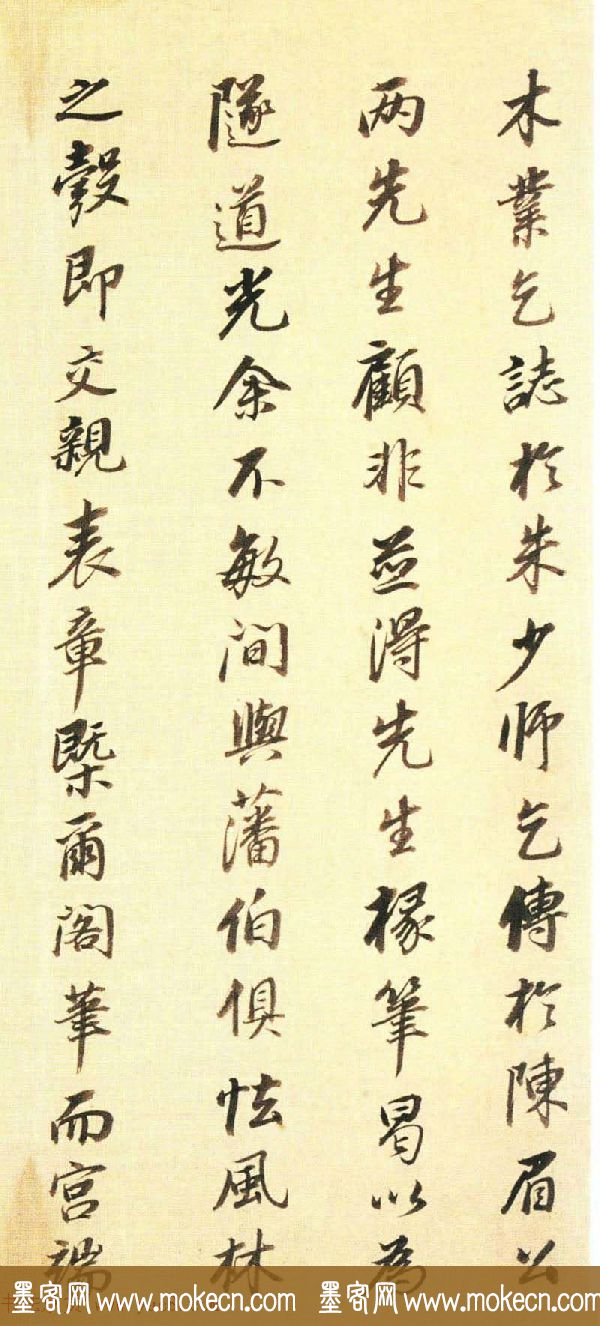 木業乞誌於朱少师乞傳於陳眉公
两先生顧非並得先生椽筆曷以為
隧道光余不敏间與藩伯俱怯風林
之㲄即交親表章槩爾阁筆而宫端
墨客网 www.mokecn.com 墨客网 www.mokecn.com